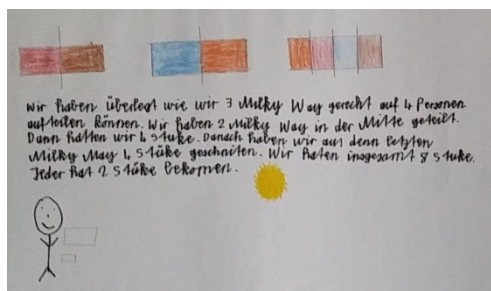 Wir haben überlegt wie wir 3 Milky Way gerecht auf 4 Personen
aufteilen können. Wir haben 2 Milky Way in der Mitte geteilt.
Dann hatten wir 4 stuke. Danach haben wir aus denn letzten
Milky May 4 Stüke geschniten. Wir haten insgesamt 8 stuke.
Jeder hat 2 Stüke bekomen.